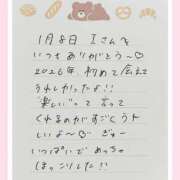 1月8日 Iさんへ
いつもありがとう〜♡
2026年、初めて会えて
うれしかったよ!!
"楽しい"って言って
くれるのがすごくうト
しいよ〜♡ ぎゅー
いっぱいであっちゃ
ほっこりした!!